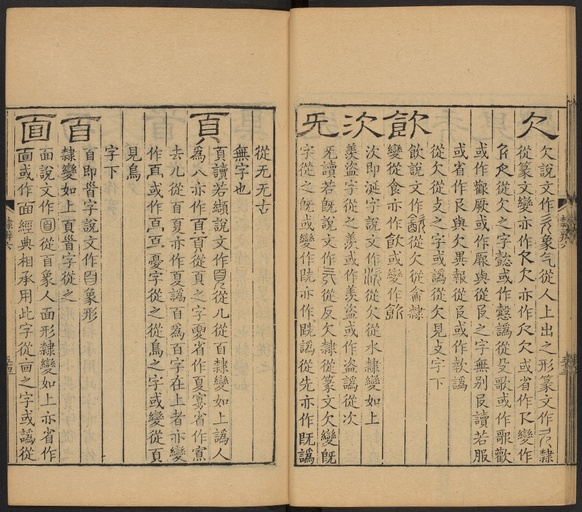 欠
欠說文作象气從人上出之形篆文作隸
從篆文變亦作欠亦作欠或省作變作
從欠之字懿或作懿譌從歌或作歌歡
或作歡厥或作厥與從之字無別讀若服
或省作與欠異報從或作款譌
從欠從攴之字或譌從欠見攴字下
㱃
㱃說文作從欠從酓隸
變從食亦作飲或變作
次
次即涎字說文作從欠從水隸變如上
羨盜字從之羨或作羡盜或作盗譌從次
旡
旡讀若旣說文作從反欠隸從篆文欠變旣
字從之旣或變作既亦作譌從先亦作旣譌
從无无古
無字也
頁
頁讀若纈說文作從儿從𦣻隸變如上譌人
為八亦作頁從頁之字夓省作夏寡省作
去儿從𦣻夏亦作夏譌𦣻為百字在上者亦變
作或作憂字從之從鳥之字或變從頁
見鳥
字下
𦣻
𦣻即𩠐字說文作象形
隸變如上頁𩠐字從之
面
面說文作從𦣻象人面形隸變如上亦省作
面或作面經典相承用此字從面之字或譌從